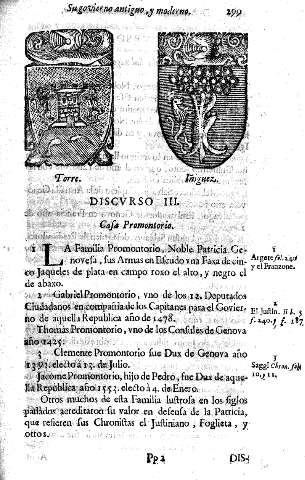 Sugovierno antiguo, y moderno. 299
Torre. Iñiguez.
DISCVRSO III.
Casa Promontorio.
1 LA Familia Promontorio, Noble Patricia Ge-
novesa, sus Armas en Escudo vna Faxa de cin-
co Jaqueles de plata en campo roxo el alto, y negro el
de abaxo.
1
Argote fol. 240
y el Franzone.
2 Gabriel Promontorio, vno de los 12. Deputados
Ciudadanos en compañia de los Capitanes para el Govier-
no de aquella Republica año de 1478.
Thomas Promontorio, vno de los Consules de Genova
año 1425.
2
El Justin. lib. 5
f. 240. y f. 187.
3 Clemente Promontorio fue Dux de Genova año
electo à 15. de Julio.
Jacome Promontorio, hijo de Pedro, fue Dux de aque-
lla Republica año electo à 4. de Enero.
3
Otros muchos de esta Familia ilustrosa en los siglos
passados acreditaron su valor en defensa de la Patricia,
que refieren sus Chronistas el Justiniano, Foglieta, y
otros.
Pp 2 DIS-